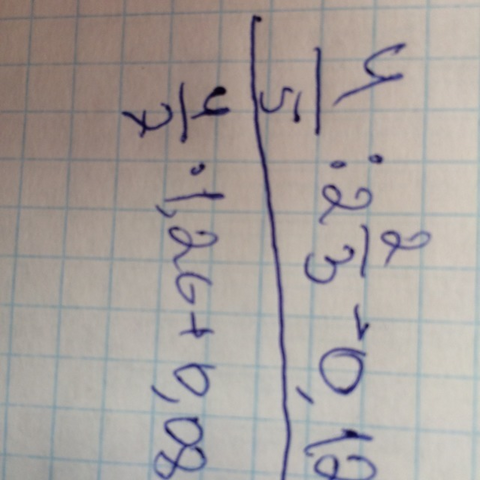 4/5 : 2 2/3 - 0,12
4/7 · 1,26 + 0,08